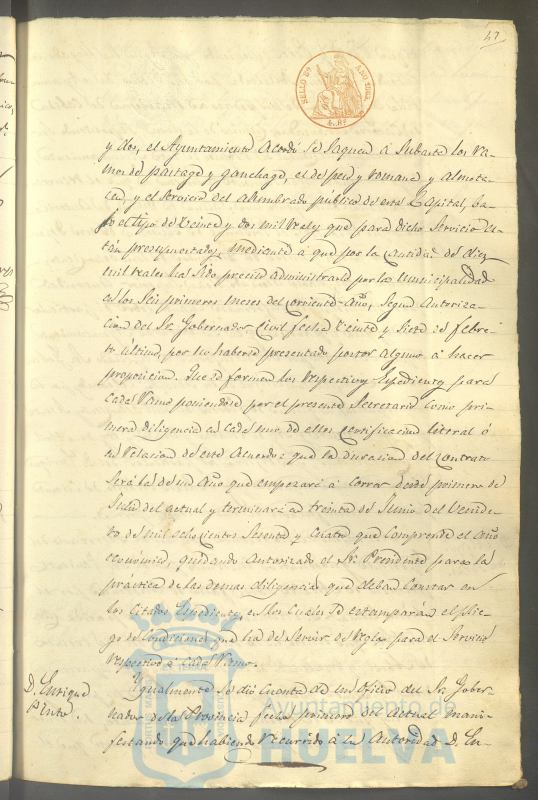 47
SELLO 9º AÑO 1863
y dos, el Ayuntamiento acordó se saquen a subasta los ra-
mos de partage y ganchage, el de peso y romana y almota-
cen, y el servicio del alumbrado público de esta Capital, ba-
jo el tipo de veinte y dos mil reales que para dicho servicio es-
tán presupuestados, mediante a que por la cantidad de diez
mil reales ha sido preciso administrarse por la Municipalidad
en los seis primeros meses del corriente año, segun autoriza-
cion del Sr. Gobernador Civil fecha veinte y siete de febre-
ro último, por no haberse presentado postor alguno a hacer
proposicion. Que se formen los respectivos espedientes para
cada ramo poniendose por el presente Secretario como pri-
mera diligencia en cada uno de ellos certificacion literal ó
en relacion de este acuerdo: que la duracion del contrato
será la de un año que empezará a correr desde primero de
Julio del actual y terminará en treinta de Junio del venide-
ro de mil ochocientos sesenta y cuatro que comprende el año
económico, quedando autorizado el Sr. Presidente para la
práctica de las demas diligencias que deban constar en
los citados espedientes, en los cuales se estamparán el plie-
go de condiciones que ha de servir de regla para el servicio
respectivo a cada ramo.
D. Enrique
Pinto.
Igualmente se dió cuenta de un oficio del Sr. Gober-
nador de la Provincia fecha primero del actual mani-
festando que habiendo recurrido a su autoridad D. En-
Ayuntamiento de
HUELVA